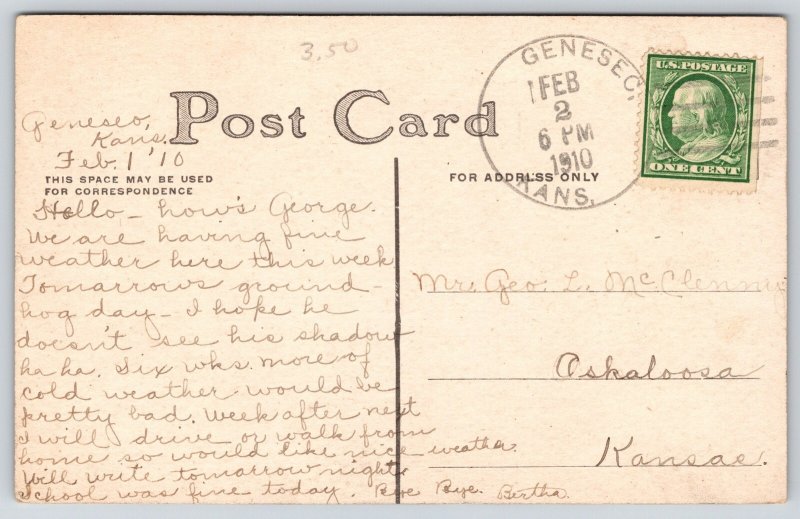 3.50
Post Card
GENESEO,
FEB
2
6 PM
1910
KANS.
U.S. POSTAGE
ONE CENT
Geneseo,
Kans.
Feb. 1 '10
THIS SPACE MAY BE USED
FOR CORRESPONDENCE
FOR ADDRESS ONLY
Hello - how's George.
We are having fine
weather here this week
Tomarrows ground-
hog day - I hope he
doesn't see his shadow
ha ha. Six wks. more of
cold weather would be
pretty bad. Week after next
I will drive or walk from
home so would like nice weather.
Will write tomorrow night
School was fine today. Bye Bye. Bertha.
Mr. Geo. L. McClenny
Oskaloosa
Kansas.